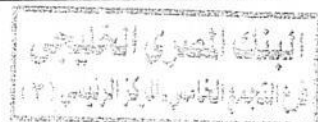 البنك المصري الخليجي
فرع التجمع الخامس، المركز الرئيسي (٣)